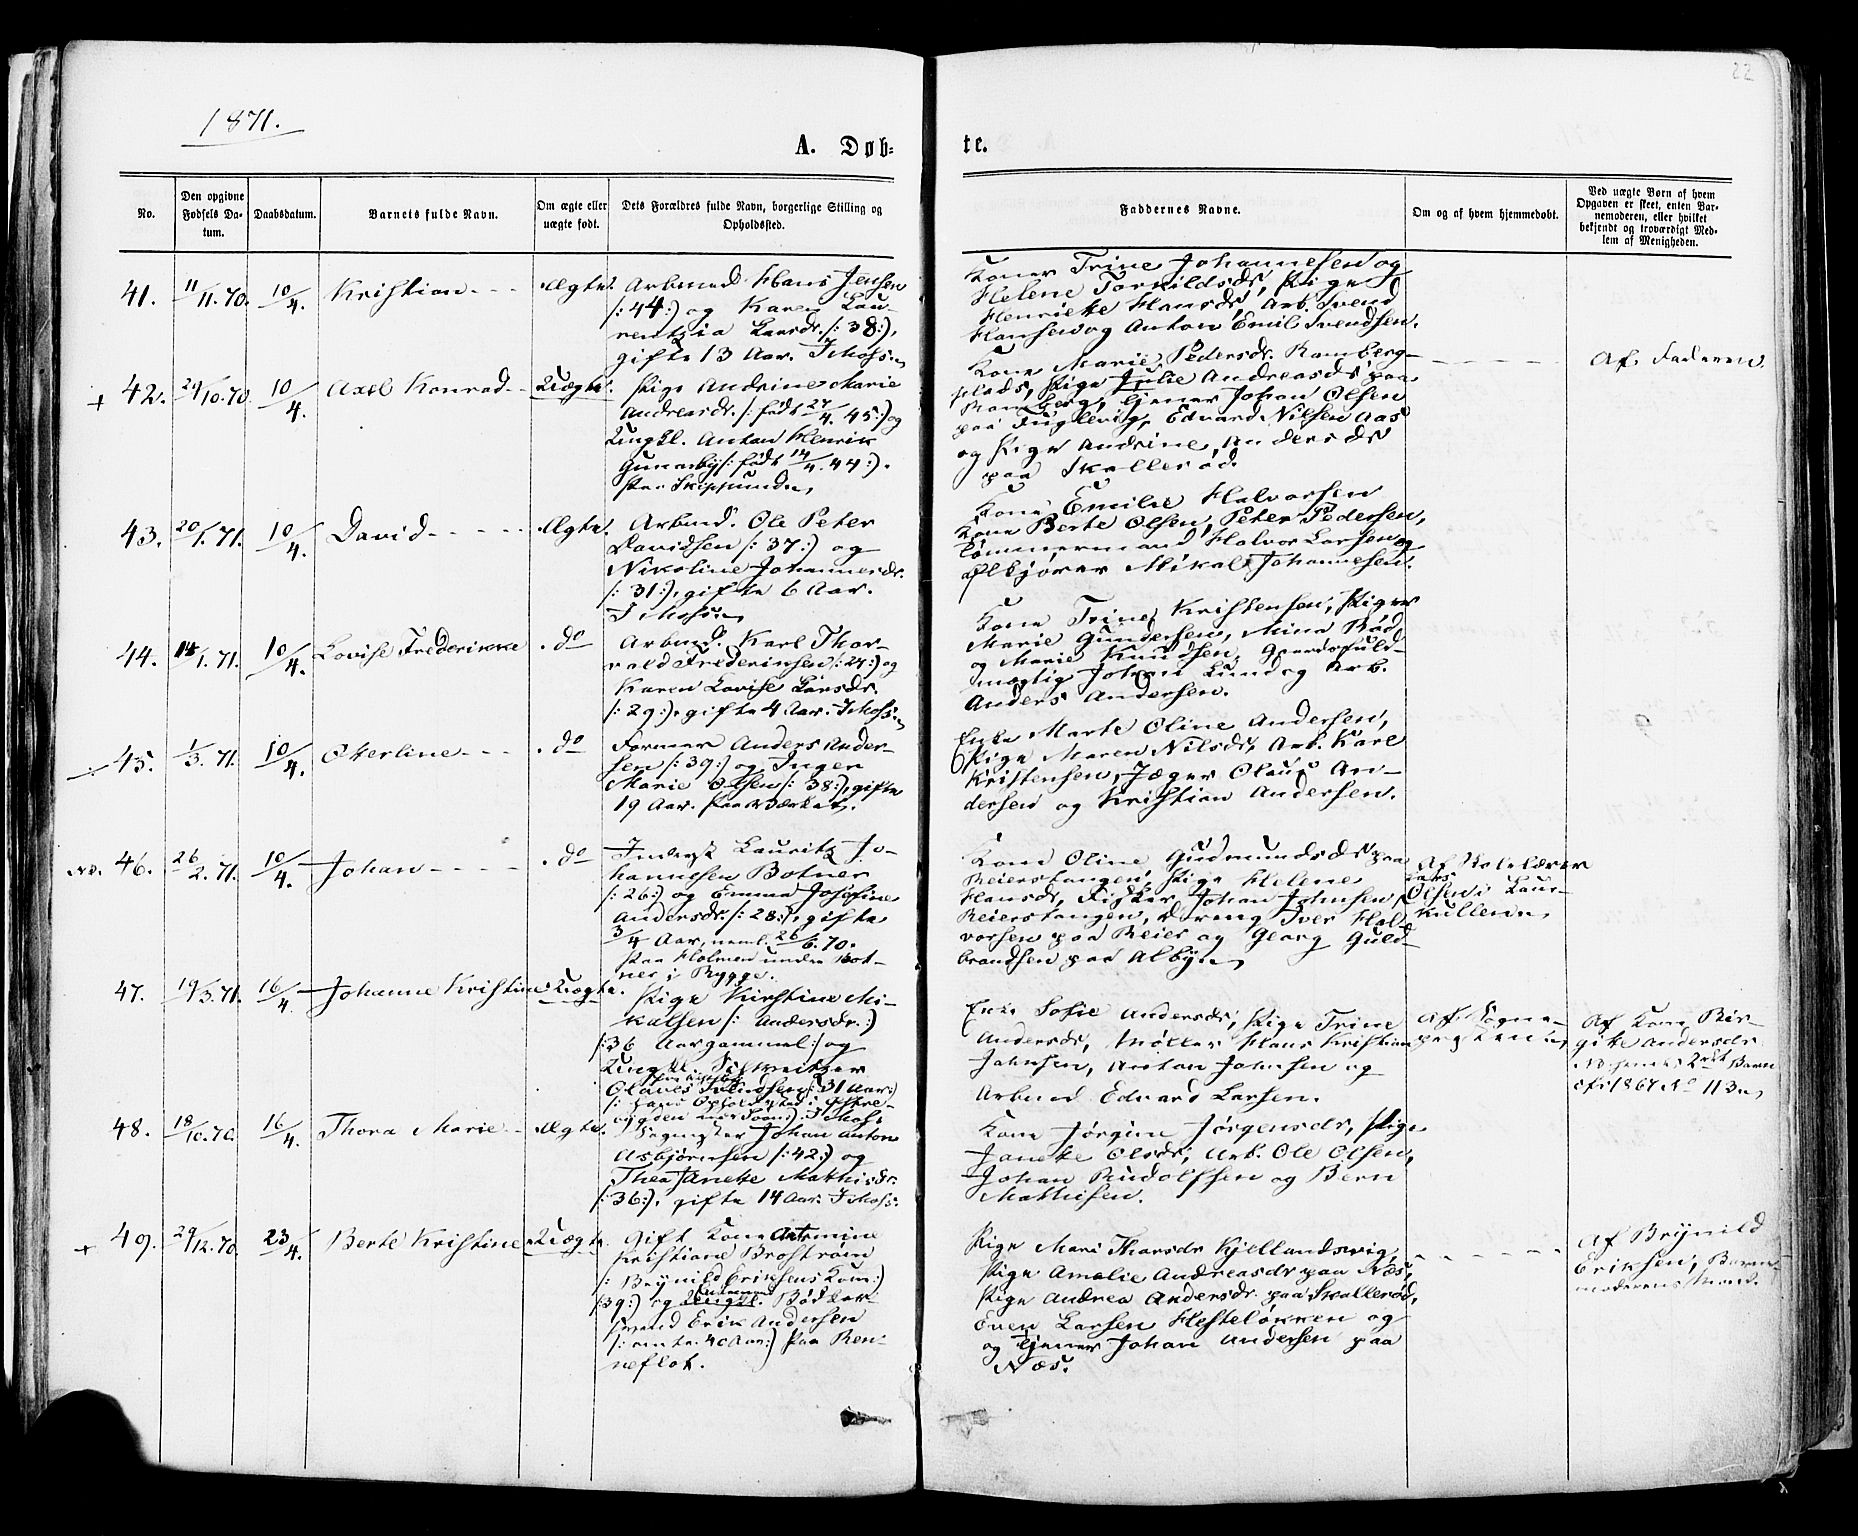 22
1871.
A. Døb-
te.
No.
Den opgivne Fødsels Da-tum.
Daabsdatum.
Barnets fulde Navn.
Om ægte eller uægte født.
Dets Forældres fulde Navn, borgerlige Stilling og Opholdssted.
Faddernes Navne.
Om og af hvem hjemmedøbt.
Ved uægte Børn af hvem Opgaven er skeet, enten Bar-nemoderen, eller hvilket bekjendt og troværdigt Med-lem af Menigheden.
41. 11/11.70. 10/4. Kristian Ægte.
Arbmd. Hans Jensen
/:44:/ og Karen Lau-
rentzia Larsdr. /:38:/,
gifte 13 Aar. I Moss.
Koner Trine Johannesen og
Helene Torkildsdr, Pige
Henriette Hansdr, Arb. Svend
Hansen og Anton Emil Svendsen.
+ 42. 29/10.70. 10/4. Axel Konrad Uægte.
Pige Andrine Marie
Andreasdr. /:født 27/4.45:/ og
Ungkl. Anton Henrik
Gunarsby /:født 14/4.44:/.
Paa Skipsund.
Kone Marie Pedersdr. Ramberg-
plads, Pige Julie Andreasdr paa
Ramberg, tjener Johan Olsen
paa Fuglevig, Edvard Nilsen Aas
og Pige Andrine Andersdr
paa Skallerød.
Af Faderen
43. 20/1.71. 10/4. David Ægte.
Arbmd. Ole Peter
Davidsen /:37:/ og
Nikoline Johannesdr.
/:31:/, gifte 6 Aar.
I Moss.
Kone Emilie Halvorsen
Kone Berte Olsen, Peter Pedersen,
Tømmermand Halvor Larsen og
Ølkjører Mikal Johannesen.
44. 14/1.71. 10/4. Lovise Frederikke do
Arbmd. Karl Thor-
vald Frederiksen /:27:/ og
Karen Lovise Larsdr.
/:29:/, gifte 4 Aar. I Moss.
Kone Trine Kristensen, Piger
Marie Gundersen, Mina Rød
og Marie Knudsen, Gaardsfuld-
mægtig Johan Lund og Arb.
Anders Andersen.
45. 1/3.71. 10/4. Oterline do
Former Anders Ander-
sen /:39:/ og Inger
Marie Olsen /:38:/, gifte
19 Aar. Paa Værket.
Enke Marte Oline Andersen,
Pige Maren Nilsdr, Arb. Karl
Kristensen, Jæger Olaus An-
dersen og Kristian Andersen.
NB. 46. 26/2.71. 10/4. Johan do
Inderst Lauritz Jo-
hannesen Botner
/:26:/ og Emma Josefine
Andersdr. /:28:/, gifte
3/4 Aar, neml. 26/6.70.
Paa Holmen under Bot-
ner i Rygge.
Kone Oline Gudmundsdr paa
Reierstangen, Pige Helene
Hansdr, Fisker Johan Johnsen
Reierstangen, dreng Iver Hal-
vorsen paa Reier og Georg Guld-
brandsen paa Alby.
Af Skolelærer
Lars
Olsen i Laur-
kullen.
47. 19/3.71. 16/4. Johanne Kristine Uægte.
Pige Kirstine Mi-
kalsen /: Andersdr.:/
/:36 Aar gammel:/ og
Ungkl.
Olaves Svendsen /:31 Aar:/
/: hans Opholdssted i Østre-
I Moss.
Enke Sofie Andersdr, Pige Trine
Andersdr, Møller Hans Kristian
Johnsen, Anton Johnsen og
Arbmd Edvard Larsen.
Af Sogne-
presten.
Af Kone Bir-
gite Andersdr.
Barn
cfr 1867 No 113.
48. 18/10.70. 16/4. Thora Marie Ægte.
Sagmster Johan Anton
Asbjørnsen /:42:/ og
Thea Janette Mathisdr.
/:36:/, gifte 14 Aar. I Moss.
Kone Jørgine Jørgensdr, Pige
Janette Olsdr, Arb. Ole Olsen,
Johan Rudolfsen og Bern
Mathisen.
+ 49. 29/12.70. 23/4. Berte Kristine Uægte.
Gift Kone Artemine
Kristiane Brostrøm
/: Brynild Eriksens Kone:/
/:39:/ og Ungkl. Bødker-
svend Erik Andersen
/:omtr. 40 Aar:/ Paa Ren-
neflot.
Pige Mari Thorsdr Kjellandsvig,
Pige Amalie Andreasdr paa Næs,
Pige Andrea Andersdr. paa Skallerød,
Even Larsen Hesteløkken og
og tjener Johan Andersen paa
Næs.
Af Brynild
Eriksen, Barne-
moderens Mand.